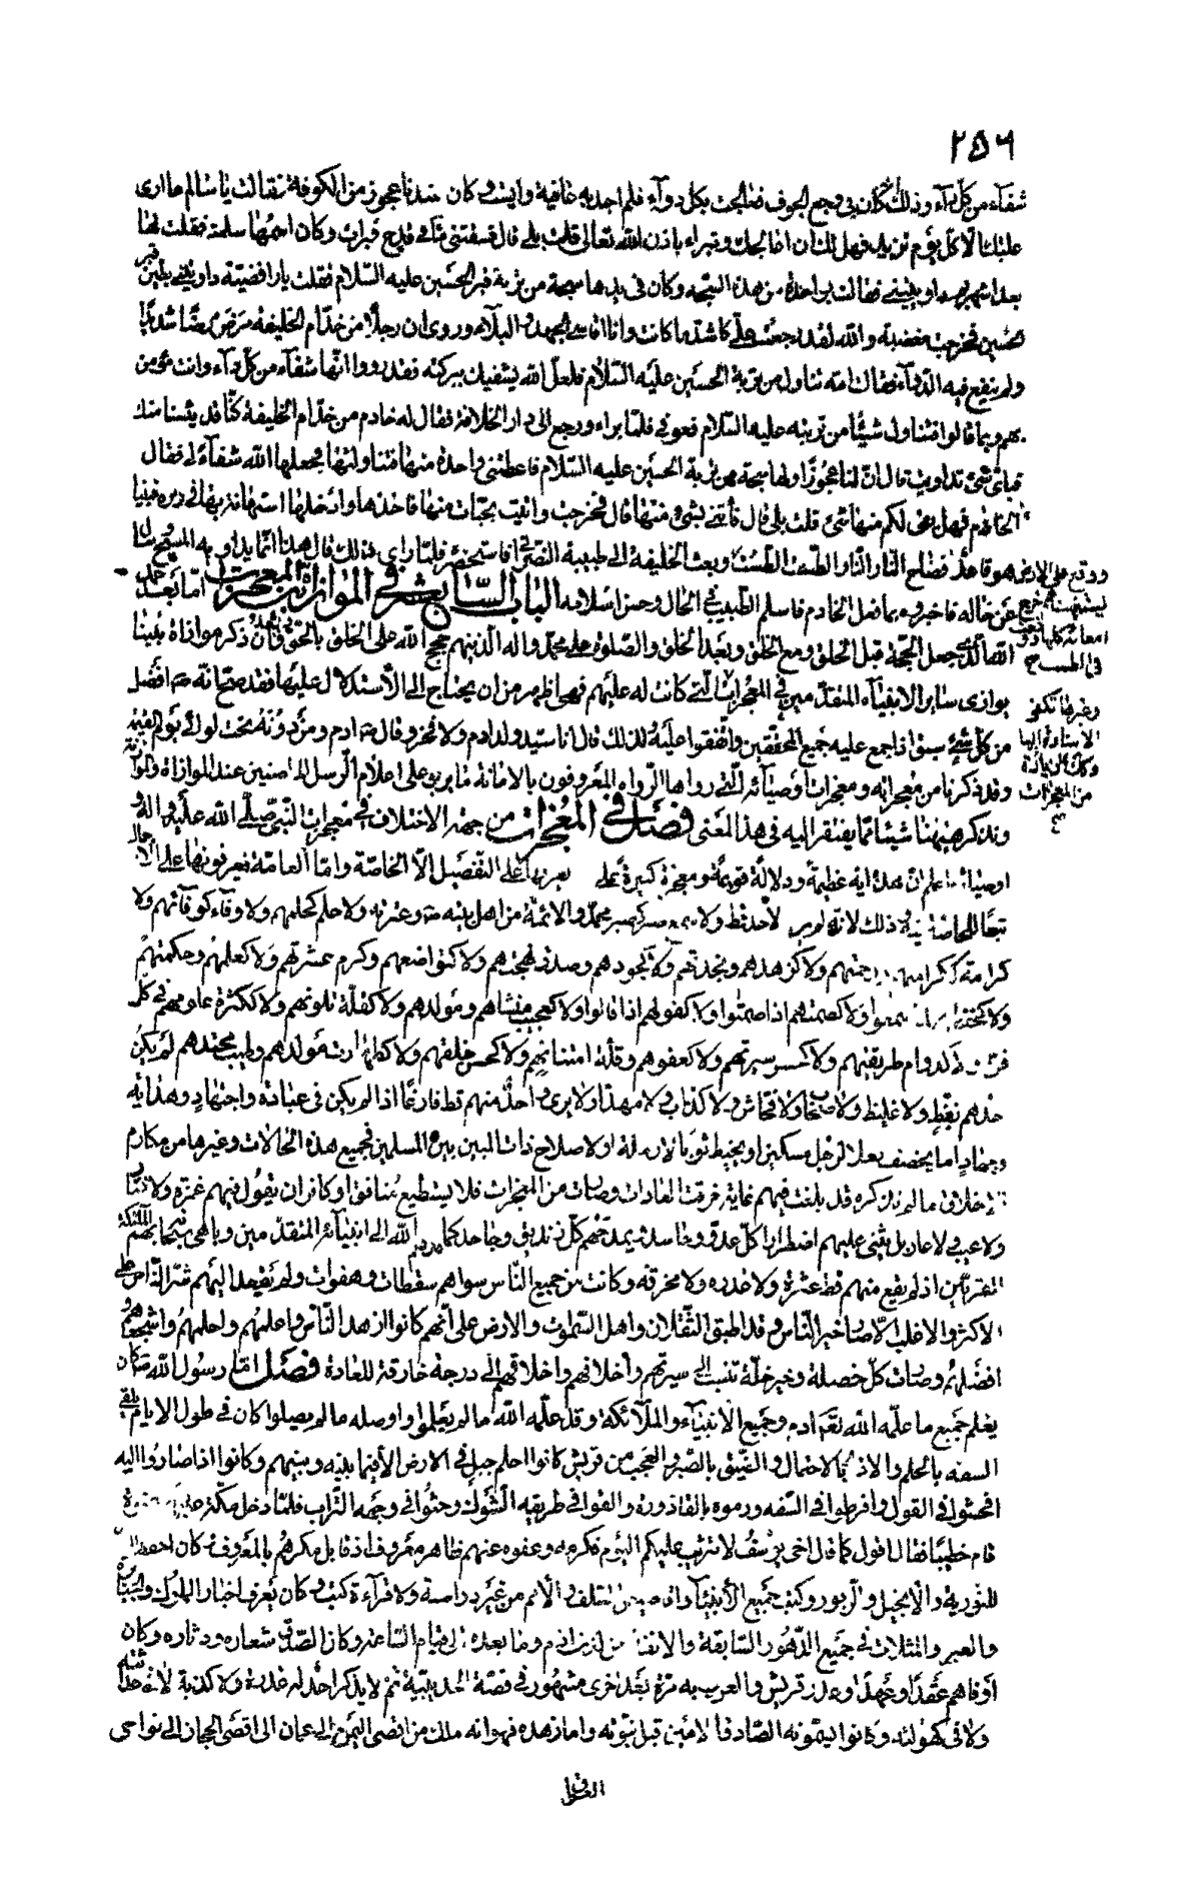 ٢٥٦
شفآء من كلّ دآء وذلك انّه كان بى وجع الجوف فتعالجت بكل دوآء فلم اجد به عافية وآيست وكان عندنا عجوز من الكوفة فقالت يا سالم ما ارى
علتك الّا كلّ يوم تزيد فهل لك ان اعالجك وتبراء باذن الله تعالى قلت بلى قال فسقتنى مآء فى قدح فبرات وكان اسمها سلمة فقلت لها
بعد اشهر بما داويتينى فقالت بواحدة من هذه السبحة وكان فى يدها سبحة من تربة قبر الحسين عليه السّلام فقلت يا رافضيّة داويتنى بطين قبر
حسين فخرجت مغضبة والله لقد رجعت علّتى كاشد ما كانت وانا اقاسى الجهد والبلآء وروى ان رجلًا من خدّام الخليفة مرض مرضًا شديدًا
ولم ينفع فيه الدوآء فقالت امه تناول من تربة الحسين عليه السّلام فلعلّ الله يشفيك ببركته فقد رووا انّها شفآء من كلّ دآء وانت مؤمن
بهم وبما قالوا فتناول شيئًا من تربته عليه السّلام فعوفى فلمّا براء ورجع الى دار الخلافة فقال له خادم من خدّام الخليفة كنّا قد يئسنا منك
فبأى شىء تداويت قال انّ لنا عجوزًا ولها سبحة من تربة الحسين عليه السّلام فاعطتنى واحدة منها فتناولتها فجعلها الله شفآءً لى فقال
الخادم فهل بقى لكم منها شىء قلت بلى قال فأتنى بشىء منها قال فخرجت واتيت بحبّات منها فاخذها وادخلها استهانة بها فى دبره فبينا
هو قاعد فصاح النّار النّار الطّست الطّست وبعث الخليفة الى طبيبه النصرانى فاستحضر فلمّا راى ذلك قال هذا انّما يداويه المسيح سال
عن حاله فاخبروه بما فعل الخادم فاسلم الطّبيب فى الحال وحسن اسلامه الباب السّابع عشر فى الموازاة بين المعجزات امّا بعد حمد
الله الّذى جعل الحجّة قبل الخلق ومع الخلق وبعد الخلق والصّلوة على محمد واله الّذينهم حجج الله على الخلق بالحقّ فان ذكر موازاة نبيّنا
بوازى ساير الانبيآء المتقدّمين فى المعجزات الّتى كانت له عليهم فهى اظهر من ان يحتاج الى الأستدلال عليها فقد صح انّه ص افضل
من كلّ شىء سبق اذ اجمع عليه جميع المحققين واتّفقوا عليه لذلك قال انا سيّد ولد ادم ولا فخر وقال ص ادم ومن دونه تحت لوائى يوم القيمة
وقد ذكرنا من معجزاته ومعجزات اوصيآئه الّتى رواها الرّواة المعروفون بالامانة ما يربو على اعلام الرّسل الماضين عند الموازاة
ونذكر هيهنا شيئا ممّا يفتقر اليه فى هذا المعنى فصل فى المعجزات من جهة الاختلاف فى معجزات النّبى صلّى الله عليه واله و
اوصيآئه اعلم انّ هذه ايه عظيمة ودلالة قويمة ومعجزة كبيرة على يعرفها على التّفصيل الّا الخاصّة وامّا العامّة فيعرفونها على الاجمال
تبعًا للخاصّة فى ذلك لانّه لم ير لاحد قط ولا سمع صبر كصبر محمّد والائمّة من اهل بيته ص وعترته ولا حلم كحلمهم ولا وفآء كوفآئهم ولا
كرامة ككرامتهم ولا كزهدهم ونجدتهم ولا كجودهم وصدق لهجتهم ولا كتواضعهم وكرم عشرتهم ولا كعلمهم وحكمتهم
ولا كعصمتهم اذا صمتوا ولا كقولهم اذا قالوا ولا كعجيب منشاهم ومولدهم ولا كقلّة تلونهم ولا ككثرة علومهم فى كلّ
فنّ كدوام طريقتهم ولا كحسن سيرتهم ولا كعفوهم وقلّة امتنانهم ولا كحسن خلقهم ولا كطهارت مولدهم وطيب محتدهم لم يكن
احدهم بفظٍّ ولا غليظ ولا صخّاب ولا فحّاش ولا كذّاب ولا مهذار ولا يرى احدٌ منهم قط فارغًا اذا لم يكن فى عبادة واجتهادٍ وهداية
وجهادٍ امّا يخصف نعلا لرجل مسكين او يخيط ثوبًا لارملة او لاصلاح ذات البين بين المسلمين فجميع هذه الحالات وغيرها من مكارم
الاخلاق مما لم نذكره قد بلغت فيهم غاية خرقت العادات وصارت من المعجزات فلا يستطيع منافق او كافر ان يقول فيهم غمزة ولا ذمًّا
ولا عيب ولا عار بل يثنى عليهم اضطرارًا كلّ عدو وحاسد ويمدحهم كلّ زنديق وجاحد كما الله الى انبيآئه المتقدّمين وباهى بهم الملائكة
المقرّبين اذ لم يقع منهم قط عثرة ولا غدرة ولا مخرقة وكانت من جميع النّاس سواهم سقطات وهفوات ولم يقصد اليهم شرّ النّاس على
الاكثر والاغلب الّا صار خير النّاس وقد اطبق الثّقلان واهل السّموات والارض على انّهم كانوا ازهد النّاس واعلمهم واحلمهم واشجعهم و
افضلهم وصارت كلّ خصلة وخير خلّة تنسب الى سيرتهم واخلاقهم الى درجة خارقة للعادة فصل امّا رسول الله ص كان
يعلم جميع ما علّمه الله تع ادم وجميع الانبيآء والملآئكة وقد علّمه الله ما لم يعلموا واوصله ما لم يصلوا كان فى طول الايام يلقى
السفه بالحلم والاذى بالاحتمال والضّيق بالصّبر والعجب من قريش كانوا احلم جبل فى الارض الّا فيما بينه وبينهم وكانوا اذا صاروا اليه
افحشوا فى القول وافرطوا فى السّفه ورموه بالقاذورة والقوا فى طريقه الشّوك وحثوا فى وجهه التّراب فلمّا دخل مكّة
قام خطيبًا فقال اقول كما قال اخى يوسف لا تثريب عليكم اليوم فكرمه وعفوه عنهم ظاهر معروف اذ قابل مكرهم بالمعروف وكان احفظ
للتّورية والانجيل والزّبور وكتب جميع الأنبيآء الامم من غير دراسة ولا قرآءة كتب وكان يعرف اخبار الملوك والجبابرة
والعبر والمثلات فى جميع الدّهور السّابقة من لدن ادم وما بعده الى قيام السّاعة وكان الصّدق شعاره ودثاره وكان
اوفاهم عقدًا وعهدًا وغدر قريش والعرب به مرّة بعد اخرى مشهور فى قصّة الحديبيّة ثم لا يذكر احدٌ له غدرة ولا كذبة لا فى حداثته
ولا فى كهولته وكانوا يسمّونه الصّادق الامين قبل نبوّته وامّا زهده فهو انّه ملك من اقصى اليمن الى عمان الى اقصى الحجاز الى نواحى
العراق
ووقع على الارض
وغيرها تكفى
من المعجزات